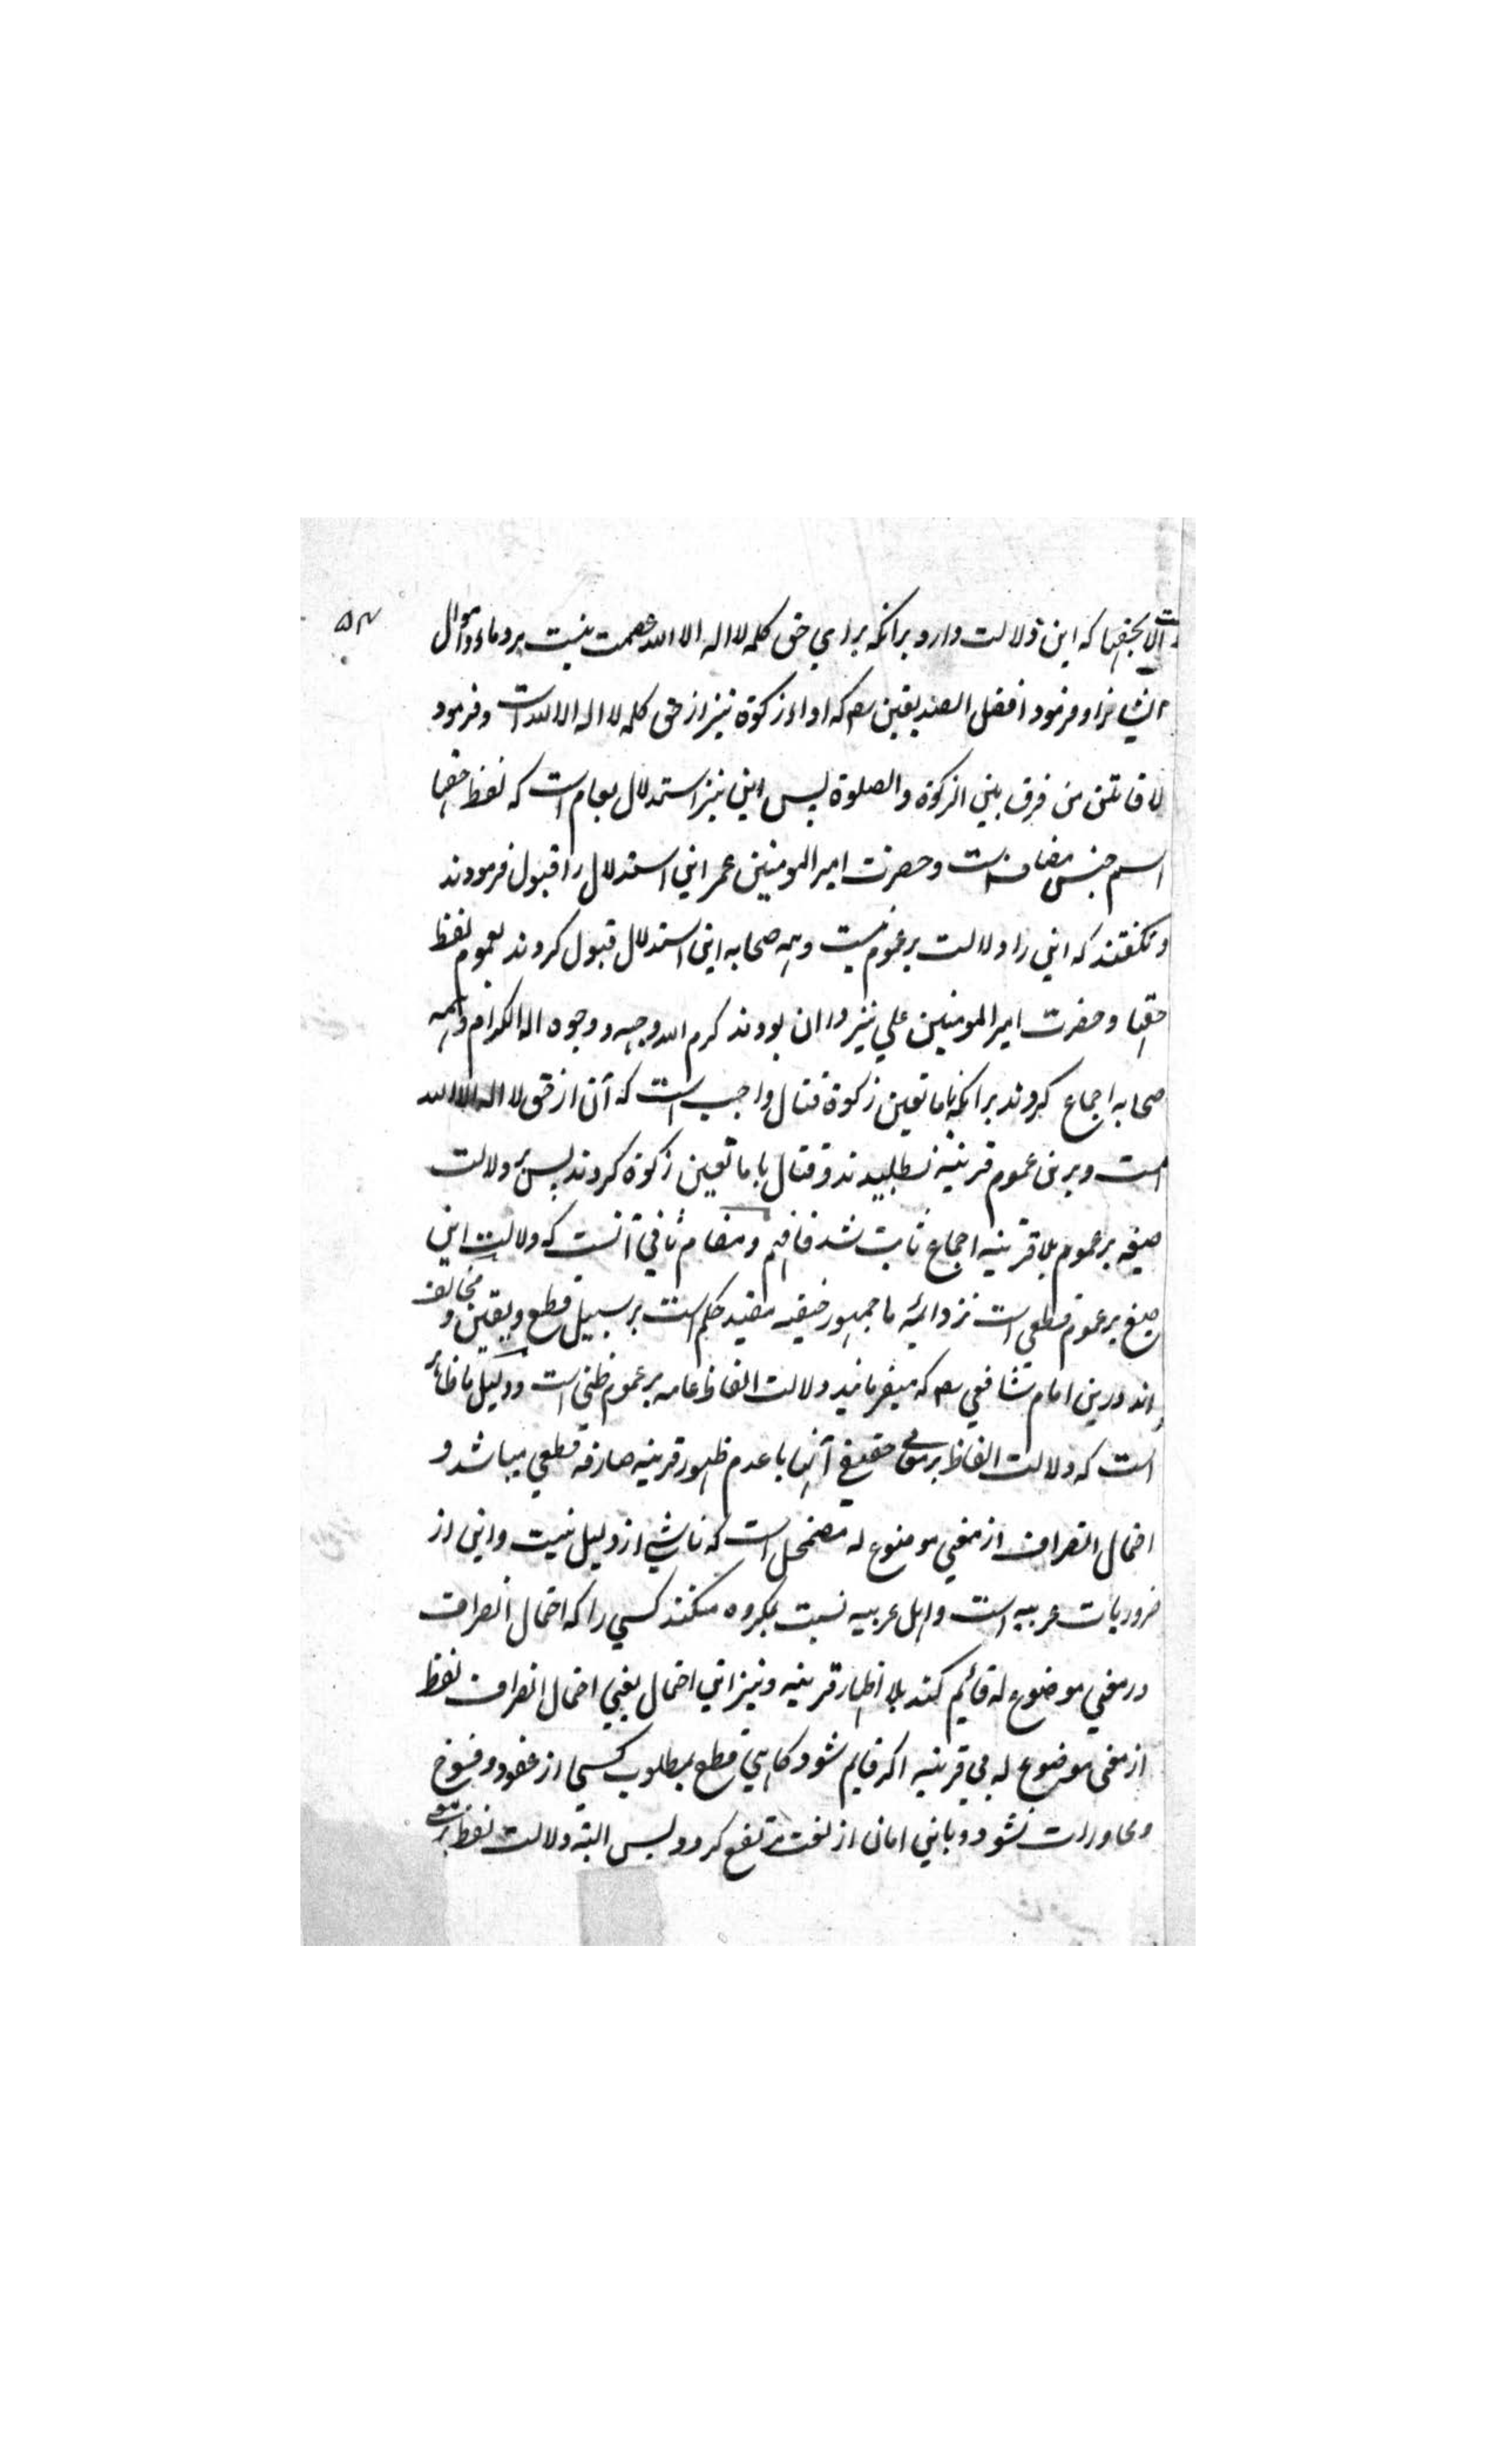 ۵۴
الا بحقها که این دلالت دارد برانکه برای حق کلمه لا اله الا الله عصمت نیست بر دماء و اموال
ایشانرا و فرمود افضل الصدیقین رض که اداء زکوة نیز از حق کلمه لا اله الا الله است و فرمود
لاقاتلن من فرق بین الزکوة و الصلوة پس این نیز استدلال بعام است که لفظ حقها
اسم جنس مضاف است و حضرت امیر المومنین عمر این استدلال را قبول فرمودند
و نکفتند که این را دلالت بر عموم نیست و همه صحابه این استدلال قبول کردند بعموم لفظ
حقها و حضرت امیر المومنین علی نیز دران بودند کرم الله وجهه و وجوه اله الکرام و همه
صحابه اجماع کردند برانکه با مانعین زکوة قتال واجب است که آن از حق لا اله الا الله
است و برین عموم قرینه نطلبیدند و قتال با مانعین زکوة کردند پس بر دلالت
صیغه بر عموم بلا قرینه اجماع ثابت شد فافهم و مقام ثانی آنست که دلالت این
صیغ بر عموم قطعی است نزد ائمه ما جمهور حنفیه مفید حکم است بر سبیل قطع و یقین و مخالف
اند درین امام شافعی رح که میفرمایند دلالت الفاظ عامه بر عموم ظنی است و دلیل ما ظاهر
است که دلالت الفاظ بر معنی حقیقی آنها با عدم ظهور قرینه صارفه قطعی میباشد و
احتمال انصراف از معنی موضوع له مضمحل است که ناشی از دلیل نیست و این از
ضروریات عربیه است و اهل عربیه نسبت بمکروه میکنند کسی را که احتمال انصراف
در معنی موضوع له قائیم کند بلا اظهار قرینه و نیز این احتمال یعنی احتمال انصراف لفظ
از معنی موضوع له بی قرینه اکر قایم شود کاهی قطع بمطلوب کسی از عقود و فسوخ
و محاورات نشود و باین امان از لغت مرتفع کردد پس البته دلالت لفظ بر معنی